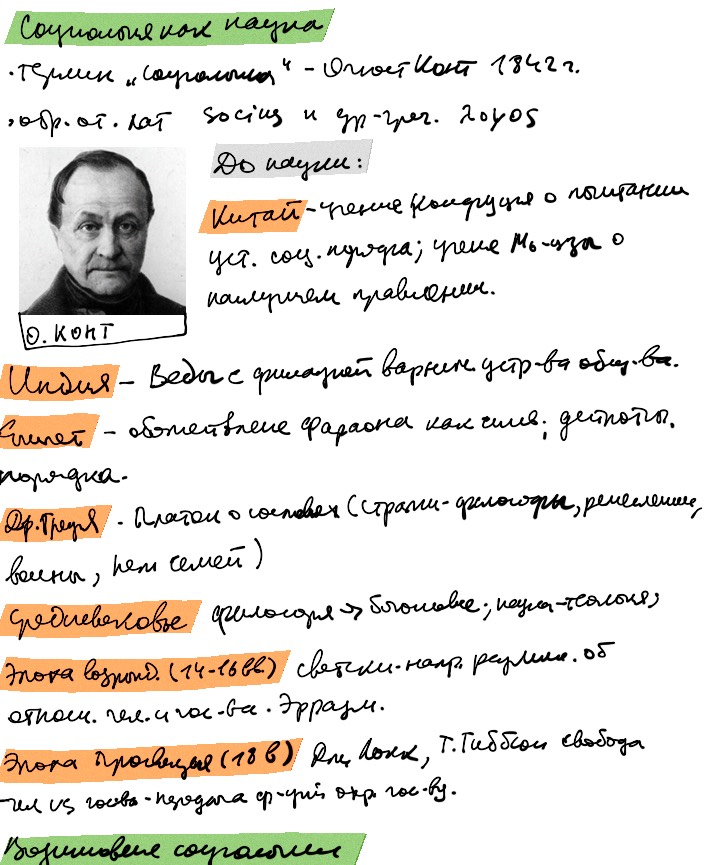 Социология как наука
·термин „социология“ – Огюст Конт 1842 г.
·обр. от. лат socius и др-греч. λογος
До науки:
Китай – учение Конфуция о почитании
уст. соц. порядка; учение Мо-цзы о
наилучшем правлении.
О. КОНТ
Индия – Веды с фиксацией варнин. устр-ва общ-ва.
Египет – обожествление фараона как силы; деспоты.
порядка.
Др. Греция - Платон о сословиях (стражи-философы, ремесленники,
воины, нет семей)
Средневековье философия → богословие; наука-теология;
Эпоха возрожд. (14-16 вв.) светски-напр. размыш. об
относ. чел. и гос-ва. Эрразм.
Эпоха Просвещения (18 в) Дж. Локк, Т. Гиббсон свобода
чел из госва - передала ф-ций охр. гос-ву.
Возникновение социологии